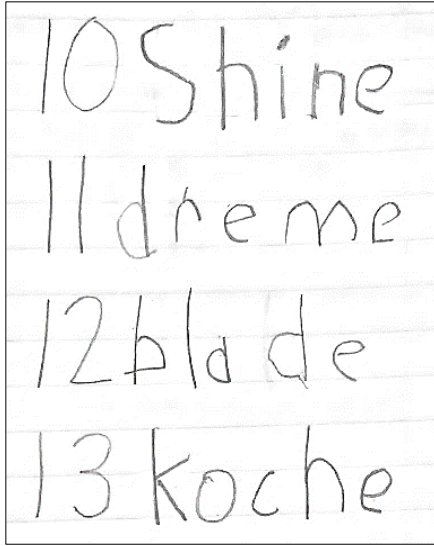 10 Shine
11 dreme
12 blade
13 koche